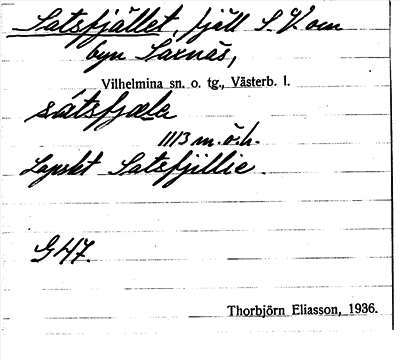 Satsfjället, fjäll S.V. om
byn Saxnäs,
Vilhelmina sn. o. tg., Västerb. l.
sátsfjæla
1113 m. ö. h.
Lapskt Satsfjillie.
G 47.
Thorbjörn Eliasson, 1936.